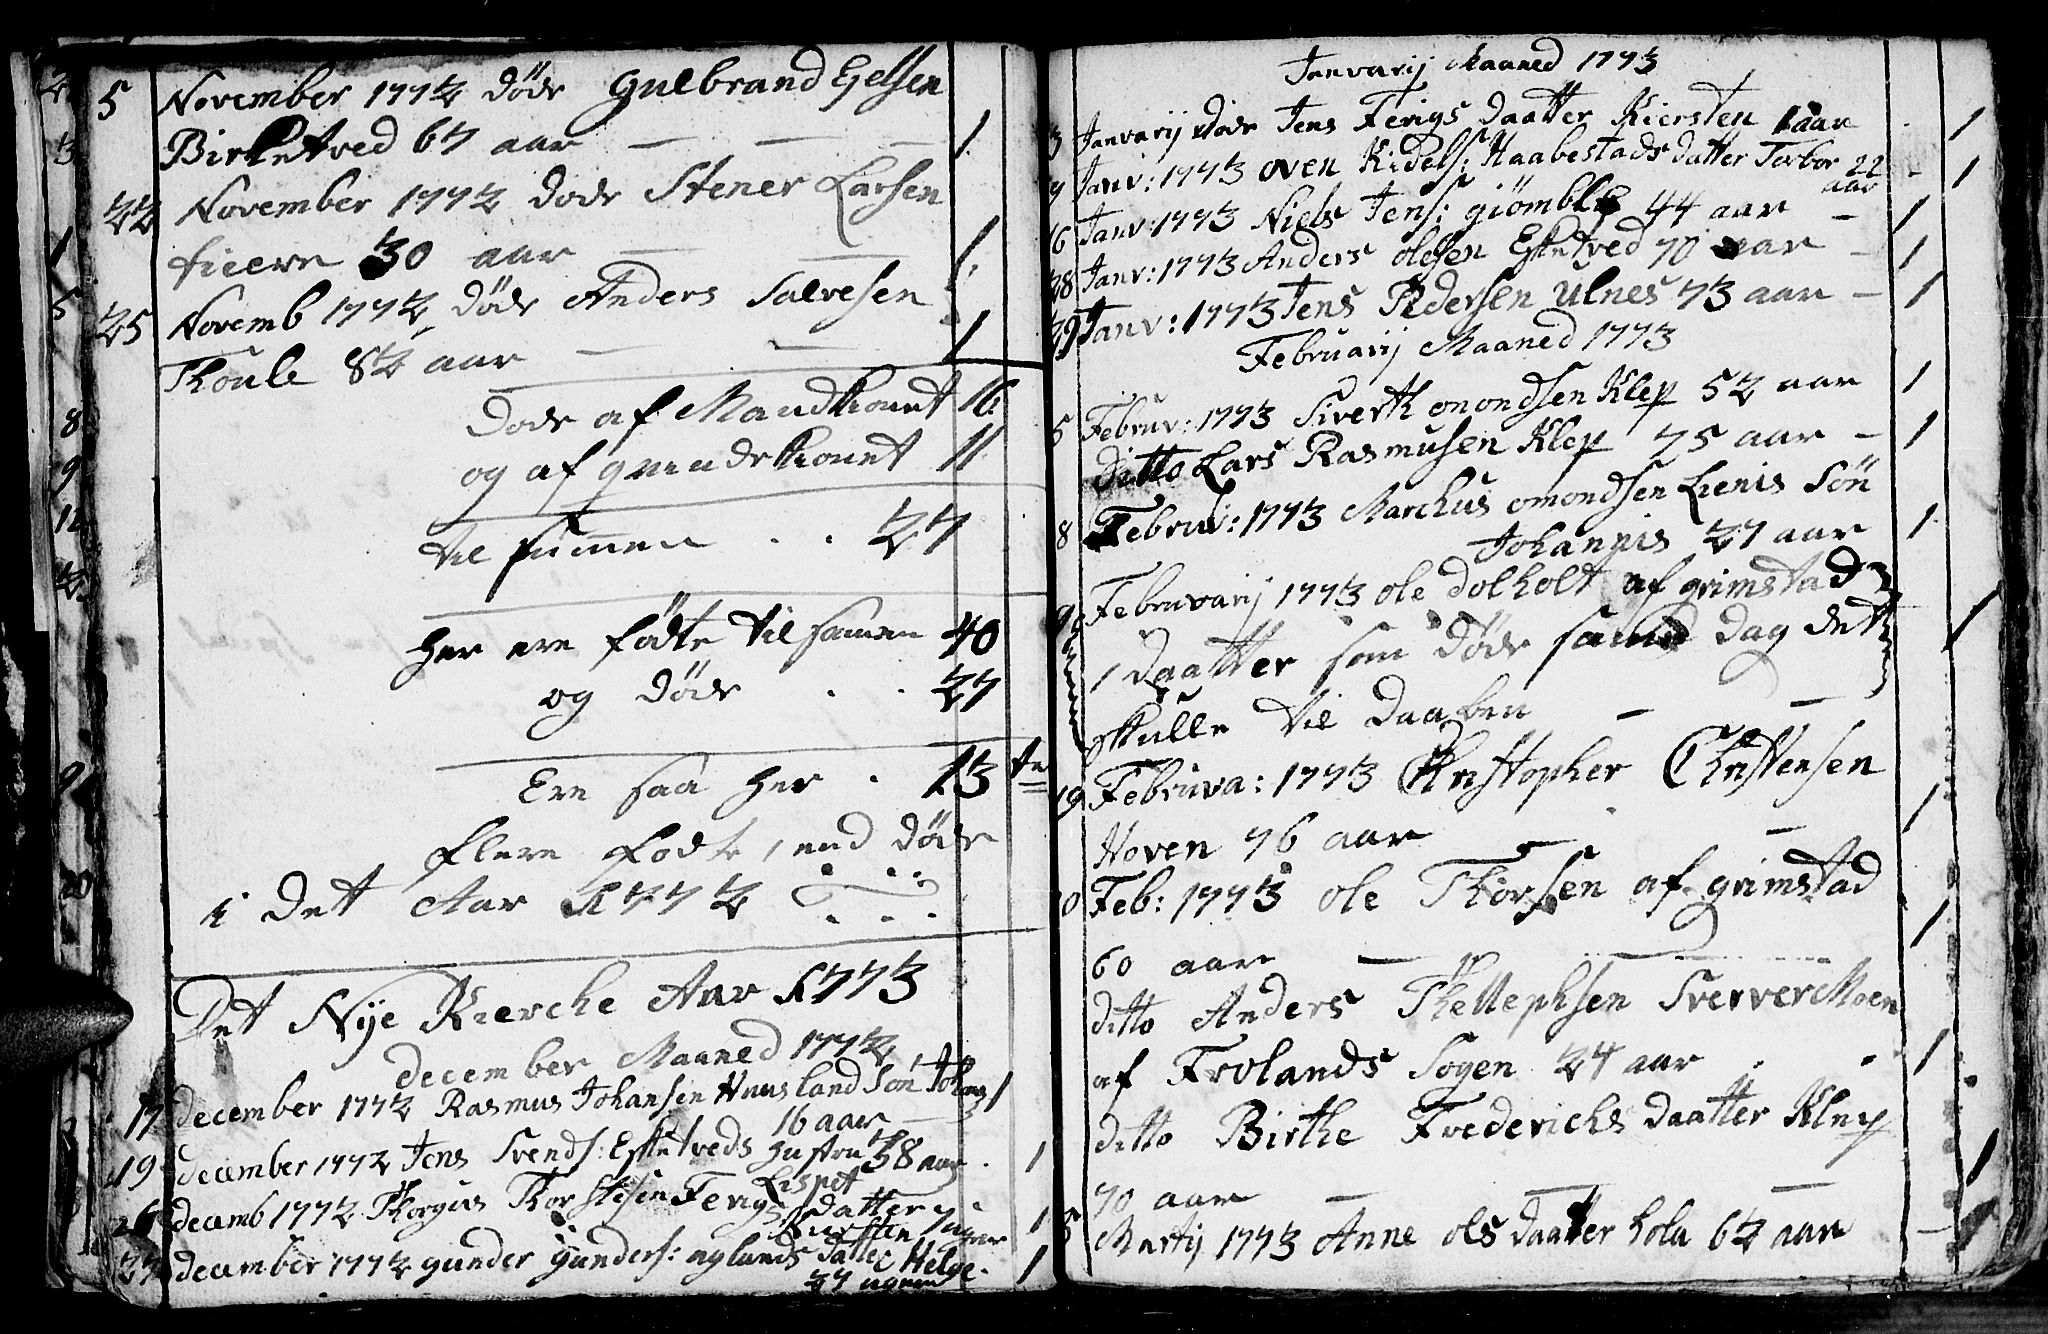 5 November 1772 döde Gulbrand Eelsen
Birketved 67 aar — — — 1.
22 November 1772 dode Stener Larsen
fieere 30 aar — — 1.
25 Novemb 1772 döde Anders Salvesen
Thoule 82 aar — — 1
Dode af Mandkionet 16.
og af qvindekionet 11.
til summen . . 27
her ere födte til samen 40
og döde . . 27
Ere saa her . 13
flere fodte, end döde
i det Aar 1772
Det Nye Kierche Aar 1773
december Maaned 1772
17 december 1772 Rasmus Johansen Huusland Sön Johans 1
16 aar
19 december 1772 Jens Svends: Eskетveds hustru 38 aar . 1
Lispet
26 decemb 1772 Thorgius Thorstesen Fevigs datter
Kiersten 1
27 december 1772 gunder gunders: nylands datter Helge. 1
27 ugeer
Janvarij Maaned 1773
3 Janvarij döde Jens Fevigs daatter Kiersten 1 aar . 1
9 Janv: 1773 oven Kidels: Haabestads datter Torbor 22 - 1
aar
16 Janv: 1773 Niels Jens: giömble 44 aar — 1
28 Janv: 1773 Anders olesen Esketved 70 aar — 1
29 Janv: 1773 Jens Pedersen Ulnes 73 aar — 1
Februarij Maaned 1773
5 Februv: 1773 Siverth omondsen Klep 52 aar 1
ditto Lars Rasmusen Klep 75 aar — 1
8 Februv: 1773 Marchus omondsen Lienis Sön
Johannis 27 aar 1.
9 Februvarij 1773 ole dolholt af grimstad
1 daatter som döde samme dag det 1
skulle til daaben — —
19 Februva: 1773 Christopher Christensen
Hoven 76 aar — 1
20 Feb: 1773 ole Thorsen af grimstad
60 aar — 1
ditto Anders Thellephsen SververMoen
af Frolands Sogen 24 aar . . 1
ditto Birthe Frederichs daatter Klep
70 aar — — — 1
5 Martij 1773 Anne ols daatter hola 62 aar — 1